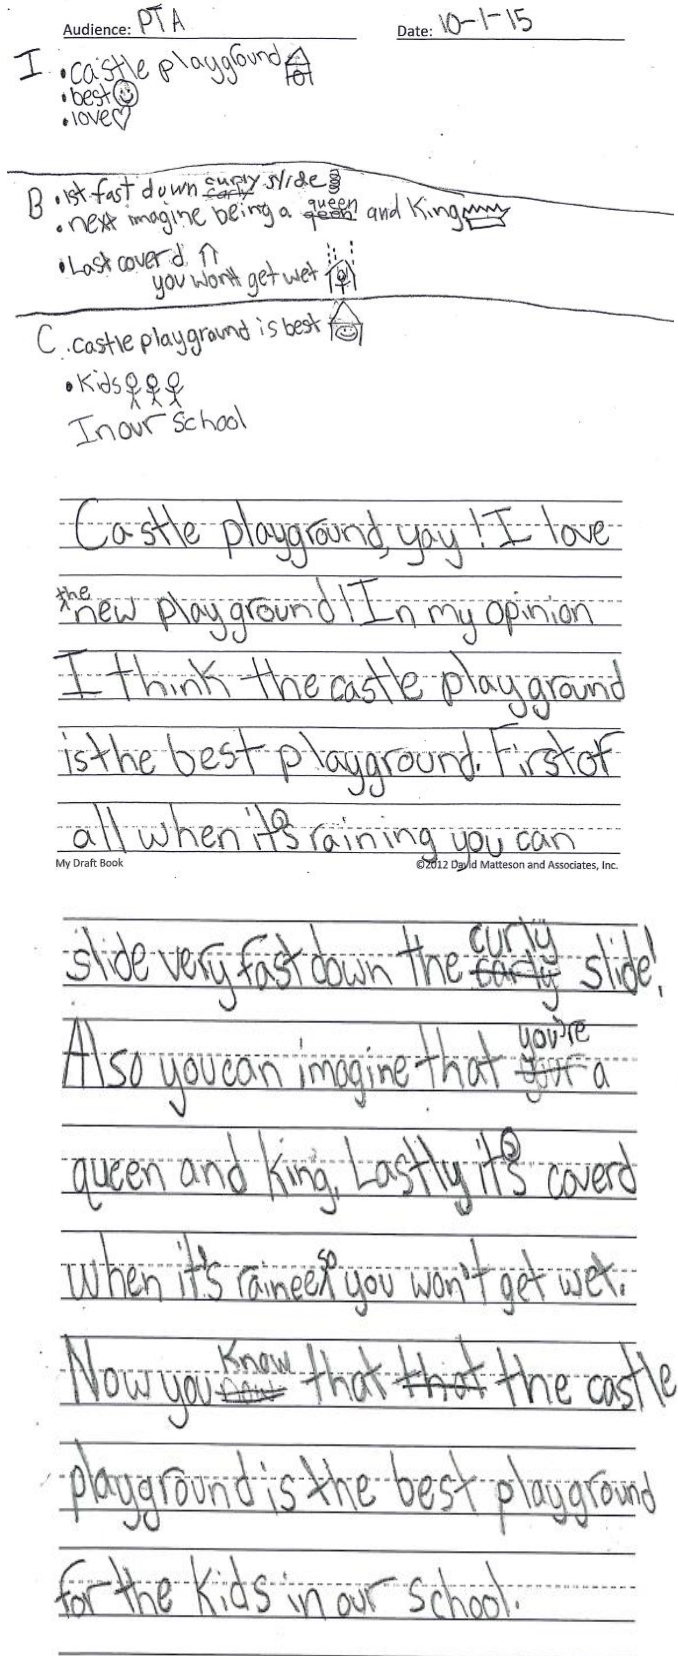 Audience: PTA Date: 10-1-15
I • castle playground
• best
• love
B • 1st fast down curly slide
• next imagine being a queen and King
• Last coverd
you won't get wet
C . castle playground is best
• Kids
In our School
Castle playground, yay! I love
the new playground! In my opinion
I think the castle playground
is the best playground. First of
all when it's raining you can
My Draft Book ©2012 David Matteson and Associates, Inc.
slide very fast down the curly slide!
Also you can imagine that you're a
queen and king. Lastly it's coverd
when it's raineey so you won't get wet.
Now you Know that that the castle
playground is the best playground
for the kids in our school.